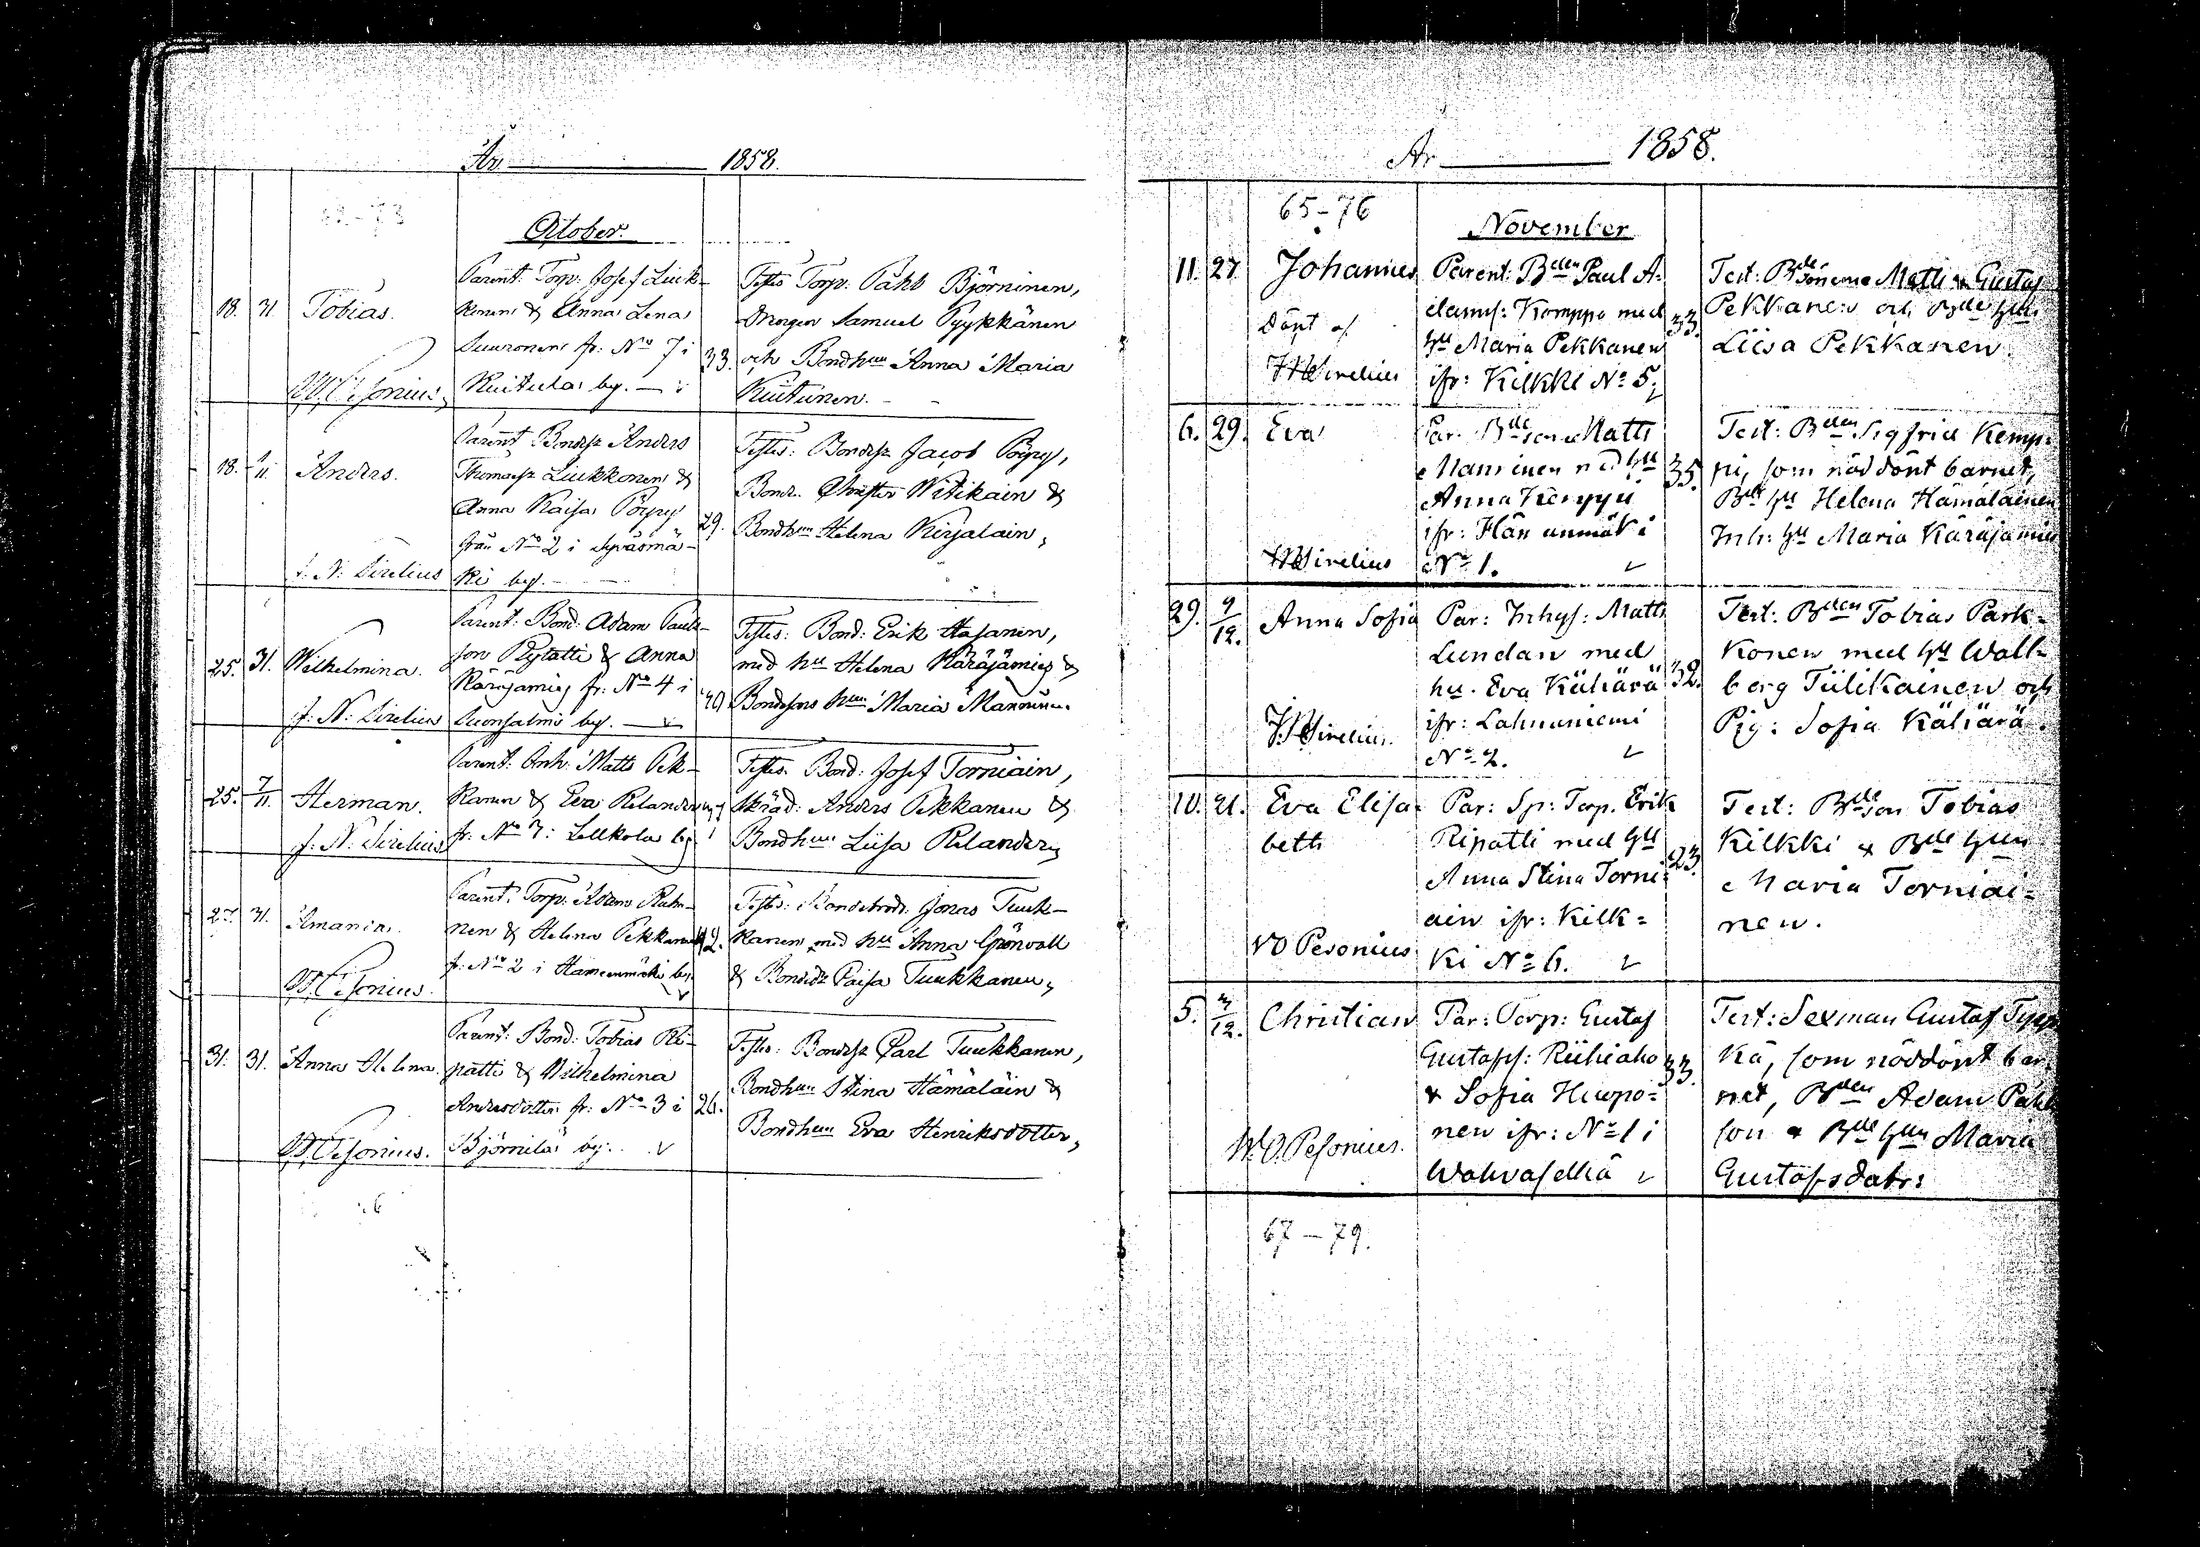 År 1858.
October.
18. 31 Tobias.
Parent: Torp: Josef Liuk-
konen & Anna Lena
Suuronen fr: No 7 i
Kuitula by.
33.
Testes Torp: Påhl Björninen,
Drengen Samuel Pyykkänen
och Bondhun Anna Maria
Kuitunen.
18. 1/11 Anders.
J: N: Sirelius
Parent Bondes: Anders
Thomass: Liukkonen &
Anna Kaisa Pöyry
från No 2 i Syväsmä-
ki by.
29.
Testes: Bondes: Jacob Pöyry,
Bond: Christer Witikain &
Bondhun Helena Kirjalain,
25. 31. Wilhelmina.
J: N: Sirelius
Parent: Bond: Adam Pauls-
son Rytatti & Anna
Käräjämies fr: No 4 i
Suonsalmi by.
Testes: Bond: Erik Hasanen,
med hu Helena Käräjämies &
Bondesons hun Maria Manninen.
25. 7/11 Herman.
J: N: Sirelius
Parent: Inh: Matts Pek-
kanen & Eva Relander
fr: No 7: Lellkola by
Testes. Bond: Josef Torniain,
Skräd: Anders Pekkanen &
Bondhun Liisa Relander,
27. 31. Amanda.
Parent: Torp: Adam Rah-
nen & Helena Pekkanen
fr: No 2 i Hämeenmäki by.
42.
Testes: Bondebrod: Jonas Tuuk-
kanen med hu Anna Grönvall
& Bondedr Caisa Tuukkanen,
31. 31. Anna Helena.
W O Pesonius.
Parent: Bond: Tobias Ri-
patti & Wilhelmina
Andersdotter fr: No 3 i
Björnilä by.
26.
Testes: Bondes: Carl Tuukkanen,
Bondhun Stina Hämäläin &
Bondhun Eva Henriksdotter,
År 1858.
65-76
November
11. 27 Johannes
döpt af
J N Sirelius
Parent: Bden Paul A-
damss: Komppa med
hu Maria Pekkanen
ifr: Kilkki No 5.
33.
Test: Bdesönerne Matti & Gustaf
Pekkanen och Bde hun
Liisa Pekkanen
6. 29. Eva
J N Sirelius
Par. Bdeson Matts
Manninen med hu
Anna Kenppi
ifr: Hän anmäki
No 1.
35.
Test: Bden Sigfrid Kemp-
pi, som nöddöpt barnet,
Bde hu Helena Hämäläinen
Inh: hu Maria Käräjämies
29. 9/12. Anna Sofia
J N Sirelius.
Par: Inhys: Matts
Lundan med
hu. Eva Kähärä
ifr: Lahnaniemi
No 2.
32.
Test: Bden Tobias Park-
konen med hu Wall-
berg Tiilikainen och
Pig: Sofia Kähärä.
10. 21. Eva Elisa-
beth
W O Pesonius
Par: Sp: Torp. Erik
Ripatti med hu
Anna Stina Torni-
ain ifr: Kilk-
ki No 6.
23.
Test: Bdeson Tobias
Kilkki & Bde hun
Maria Torniai-
nen.
5. 3/12. Christian
W. O. Pesonius.
Par: Torp: Gustaf
Gustafss: Riihiaho
& Sofia Huupo-
nen ifr: No 1 i
Wahvaselkä
33.
Test: Sexman Gustaf
kä, som nöddöpt bar-
net, Bden Adam Påhl
son & Bde hun Maria
Gustafsdotr:
67-79.